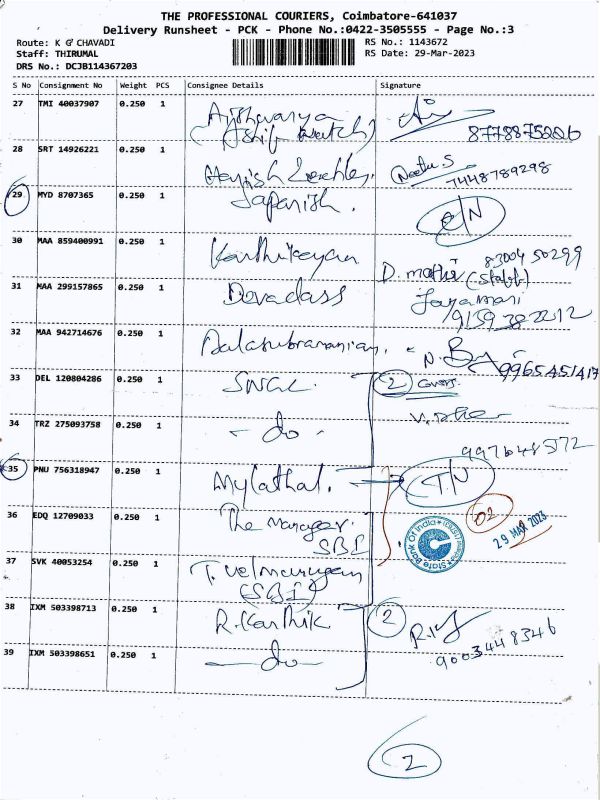 THE PROFESSIONAL COURIERS, Coimbatore-641037
Delivery Runsheet - PCK - Phone No.:0422-3505555 - Page No.:3
Route: K G CHAVADI
Staff: THIRUMAL
DRS No.: DCJB114367203
RS No.: 1143672
RS Date: 29-Mar-2023
S No Consignment No Weight PCS Consignee Details Signature
27 TMI 40037907 0.250 1 Aishwarya
8778875206
28 SRT 14926221 0.250 1 Neethu.S
7448789298
29 MYD 8707365 0.250 1 Japanish.
30 MAA 859400991 0.250 1 Karthikeyan
D. mathi (Staff)
83004 50299
31 MAA 299157865 0.250 1 Devadass Jayamani
9159382212
32 MAA 942714676 0.250 1 Balasubramanian.
9965451417
33 DEL 120804286 0.250 1 2
34 TRZ 275093758 0.250 1 - do -
997648572
35 PNU 756318947 0.250 1 Mylathal. T/N
36 EDQ 12709033 0.250 1 The Manager.
SBI
02
State Bank Of India
29 MAR 2023
37 SVK 40053254 0.250 1 T. Velmurugan
(SBI)
38 IXM 503398713 0.250 1 R. Karthik 2
9003448346
39 IXM 503398651 0.250 1 - do -
2